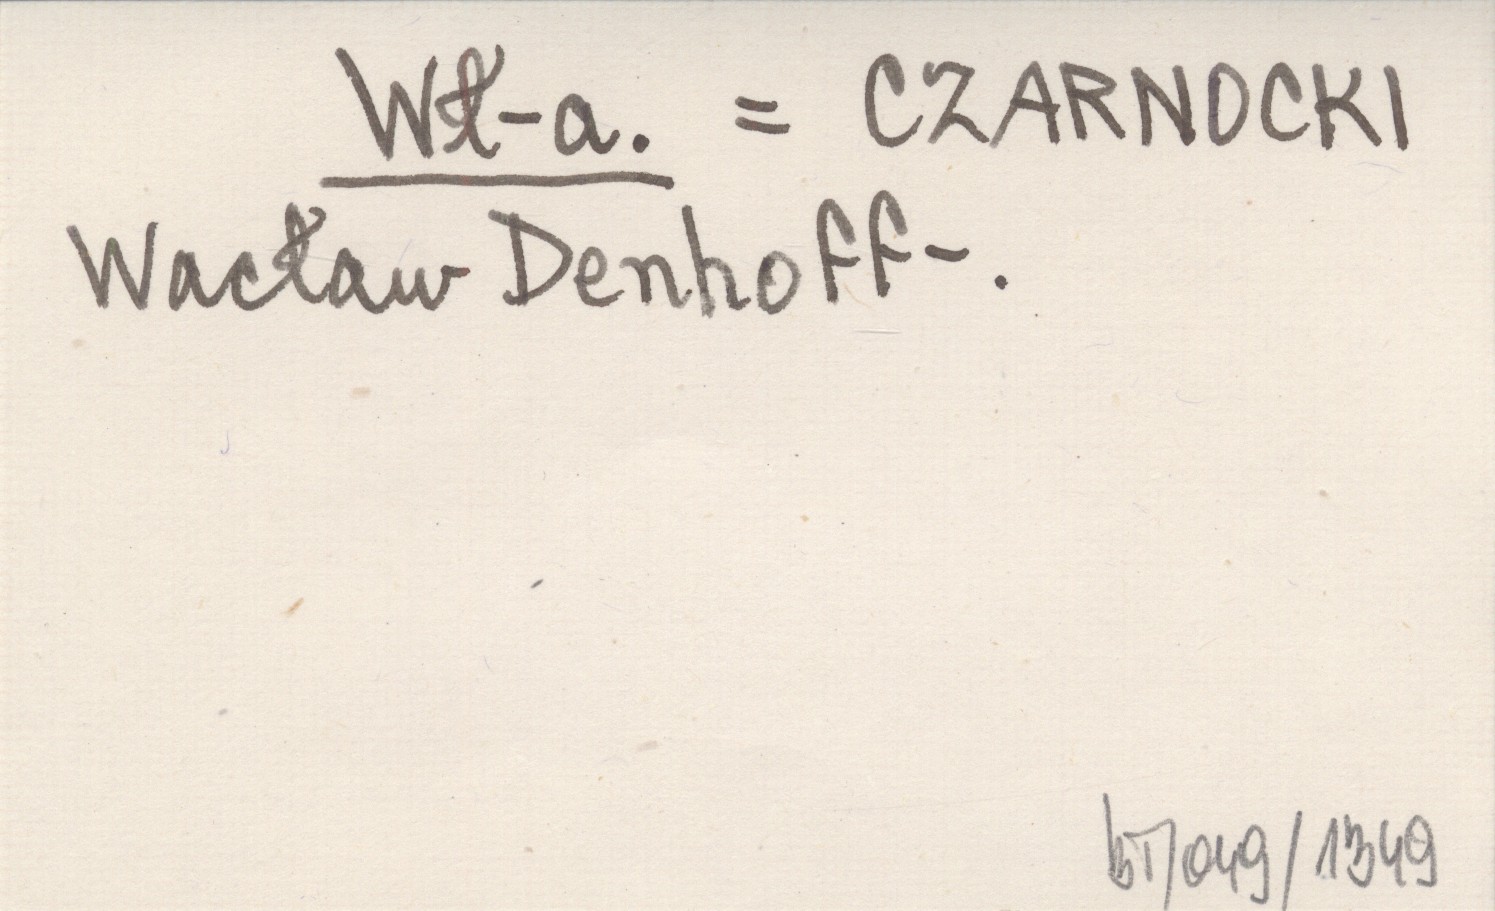 Wł-a. = CZARNOCKI
Wacław Denhoff-.
/049/1349